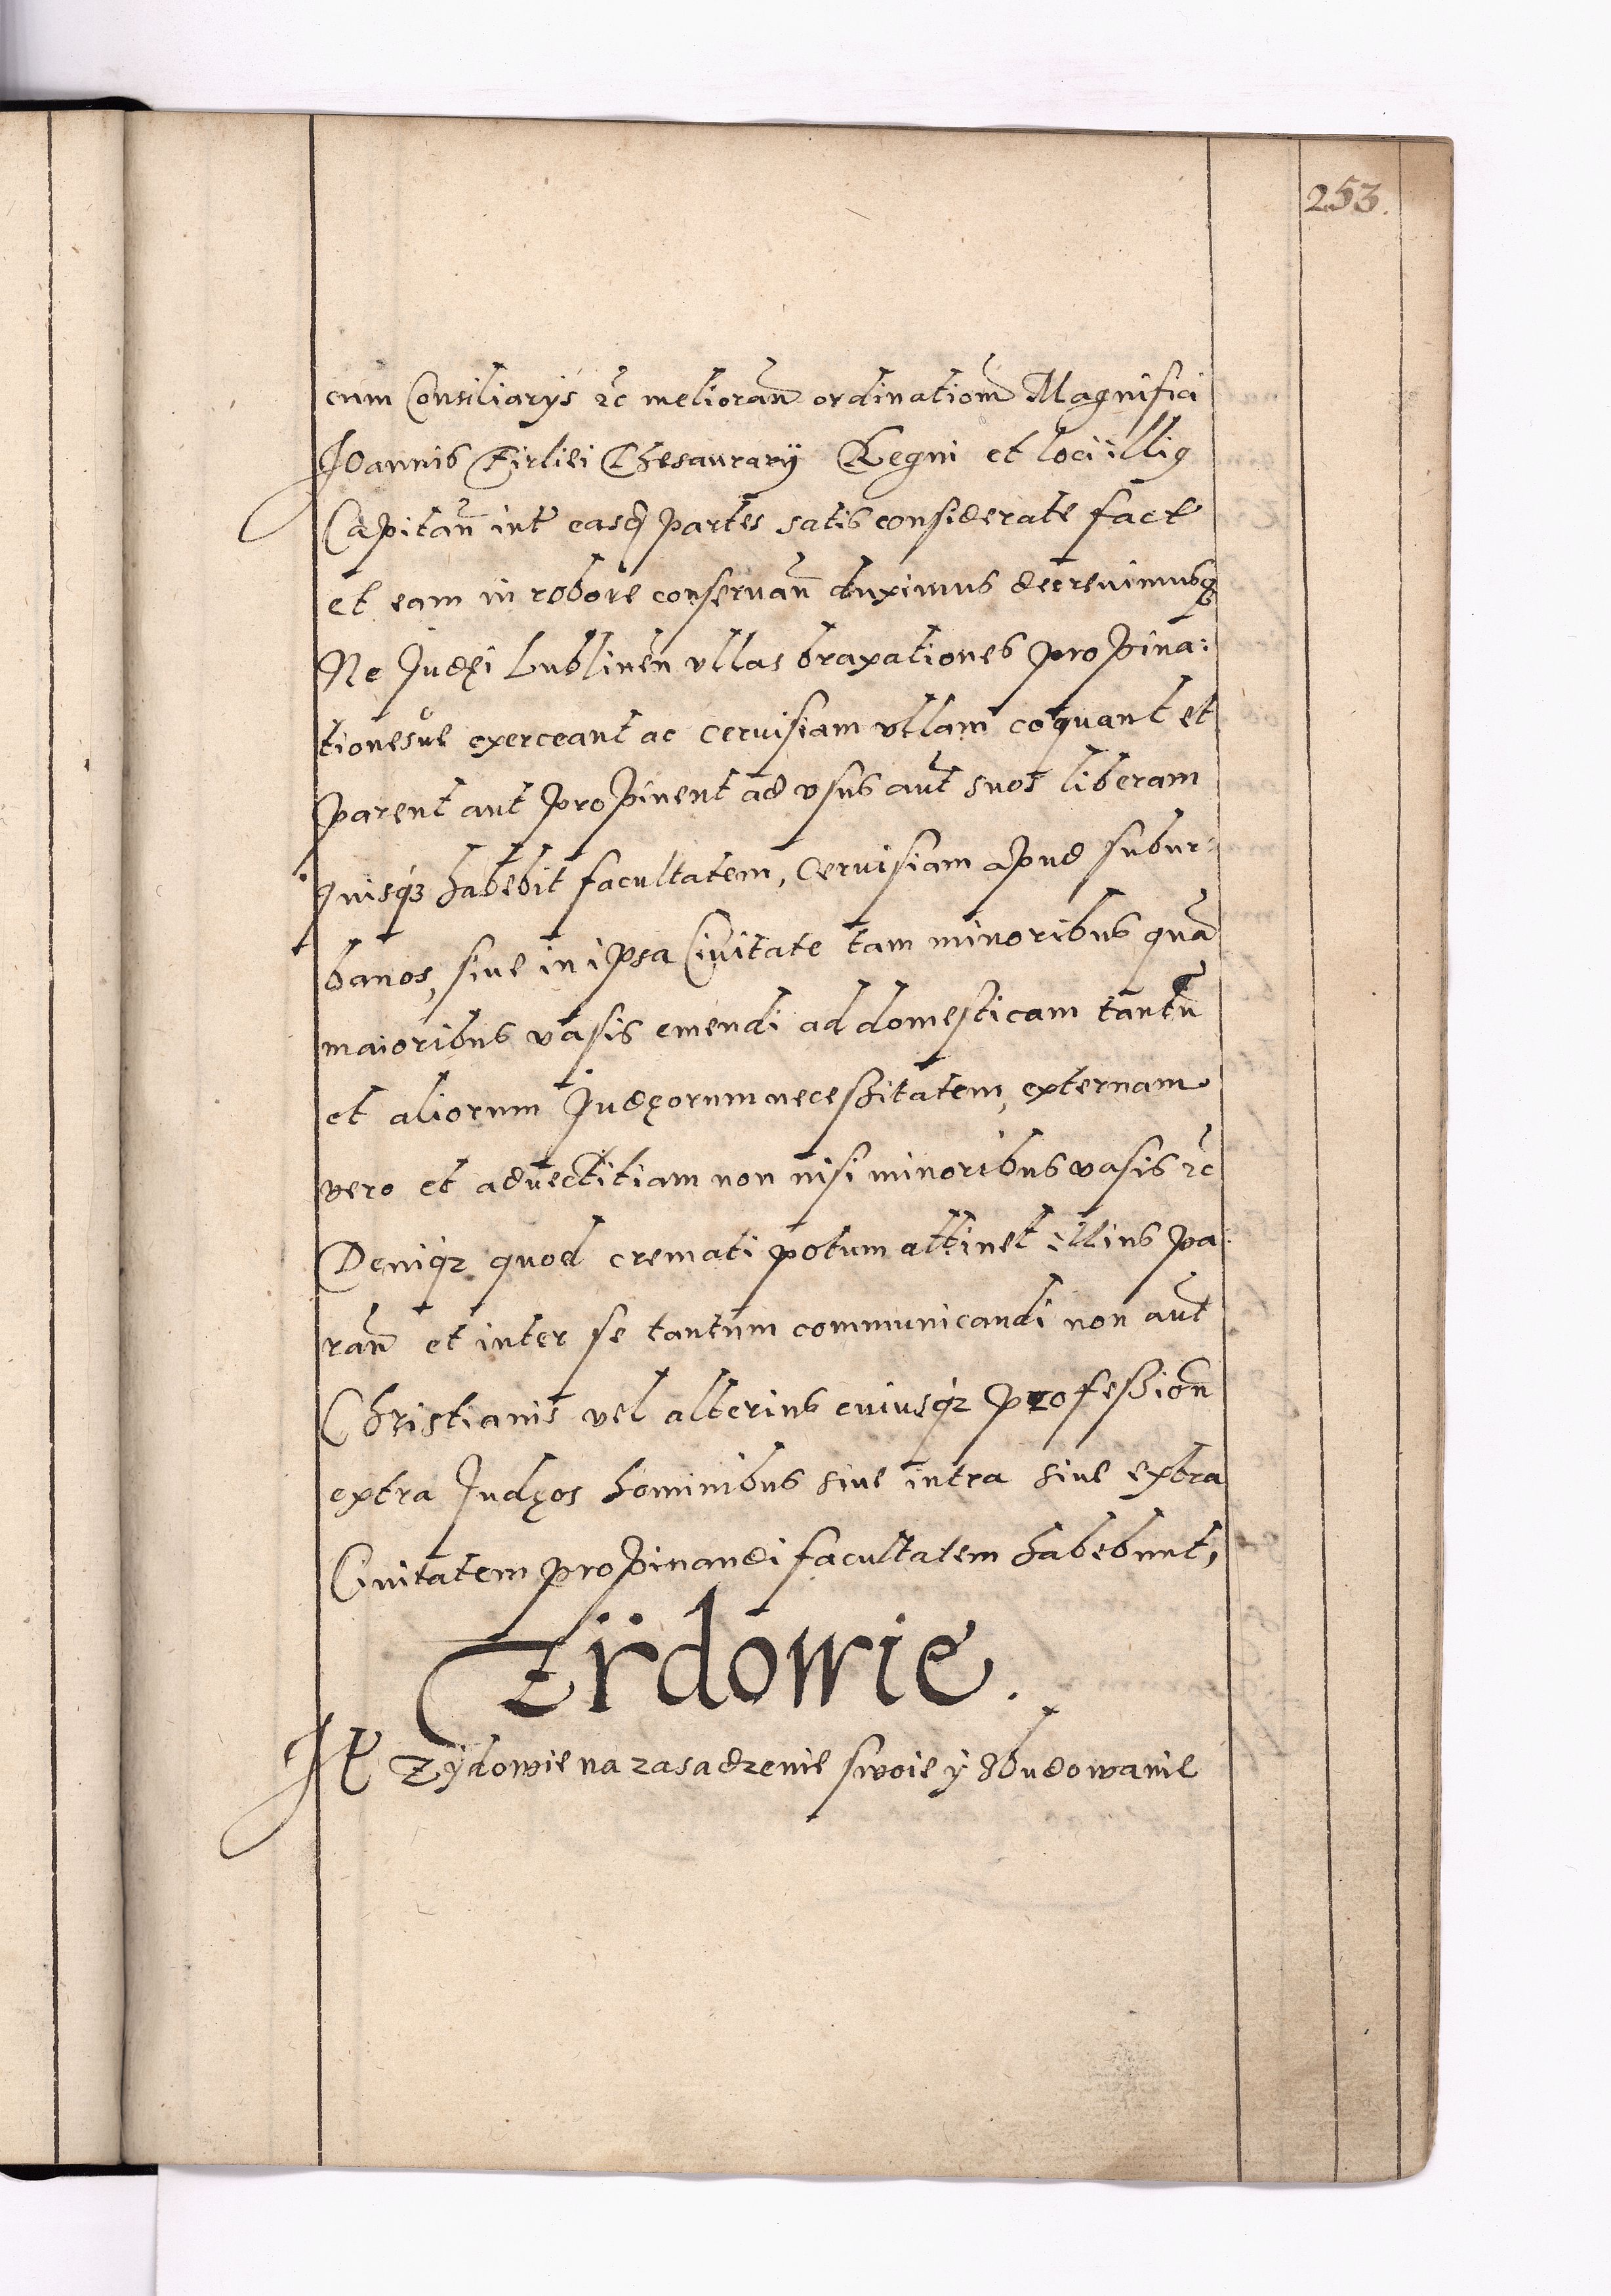 253.
cum Consiliarijs &c melioran ordinationem Magnifici
Joannis Firliei Thesaurarij Regni et loci illi9
Capitan int easq partes satis considerate fact
et eam in robore conseruan duximus decreuimusq
Ne Judęi Lublinen vllas braxationes propina:
tionesue exerceant ac ceruisiam vllam coquant et
parent aut propinent ad vsus aut suos liberam
quisqz habebit facultatem, Ceruisiam apud subur:
banos, siue in ipsa Ciuitate tam minoribus quã
maioribus vasis emendi ad domesticam tantũ
et aliorum Judęorum necessitatem, externam
vero et aduectitiam non nisi minoribus vasis &c
Deniqz quod cremati potum attinet illius pa:
ran et inter se tantum communicandi non aut
Christianis vel alterius cuiusqz profession
extra Judęos hominibus siue intra siue extra
Ciuitatem propinandi facultatem habebunt,
Zÿdowie.
It Zÿdowie na zasadzenie swoie ÿ zbudowanie